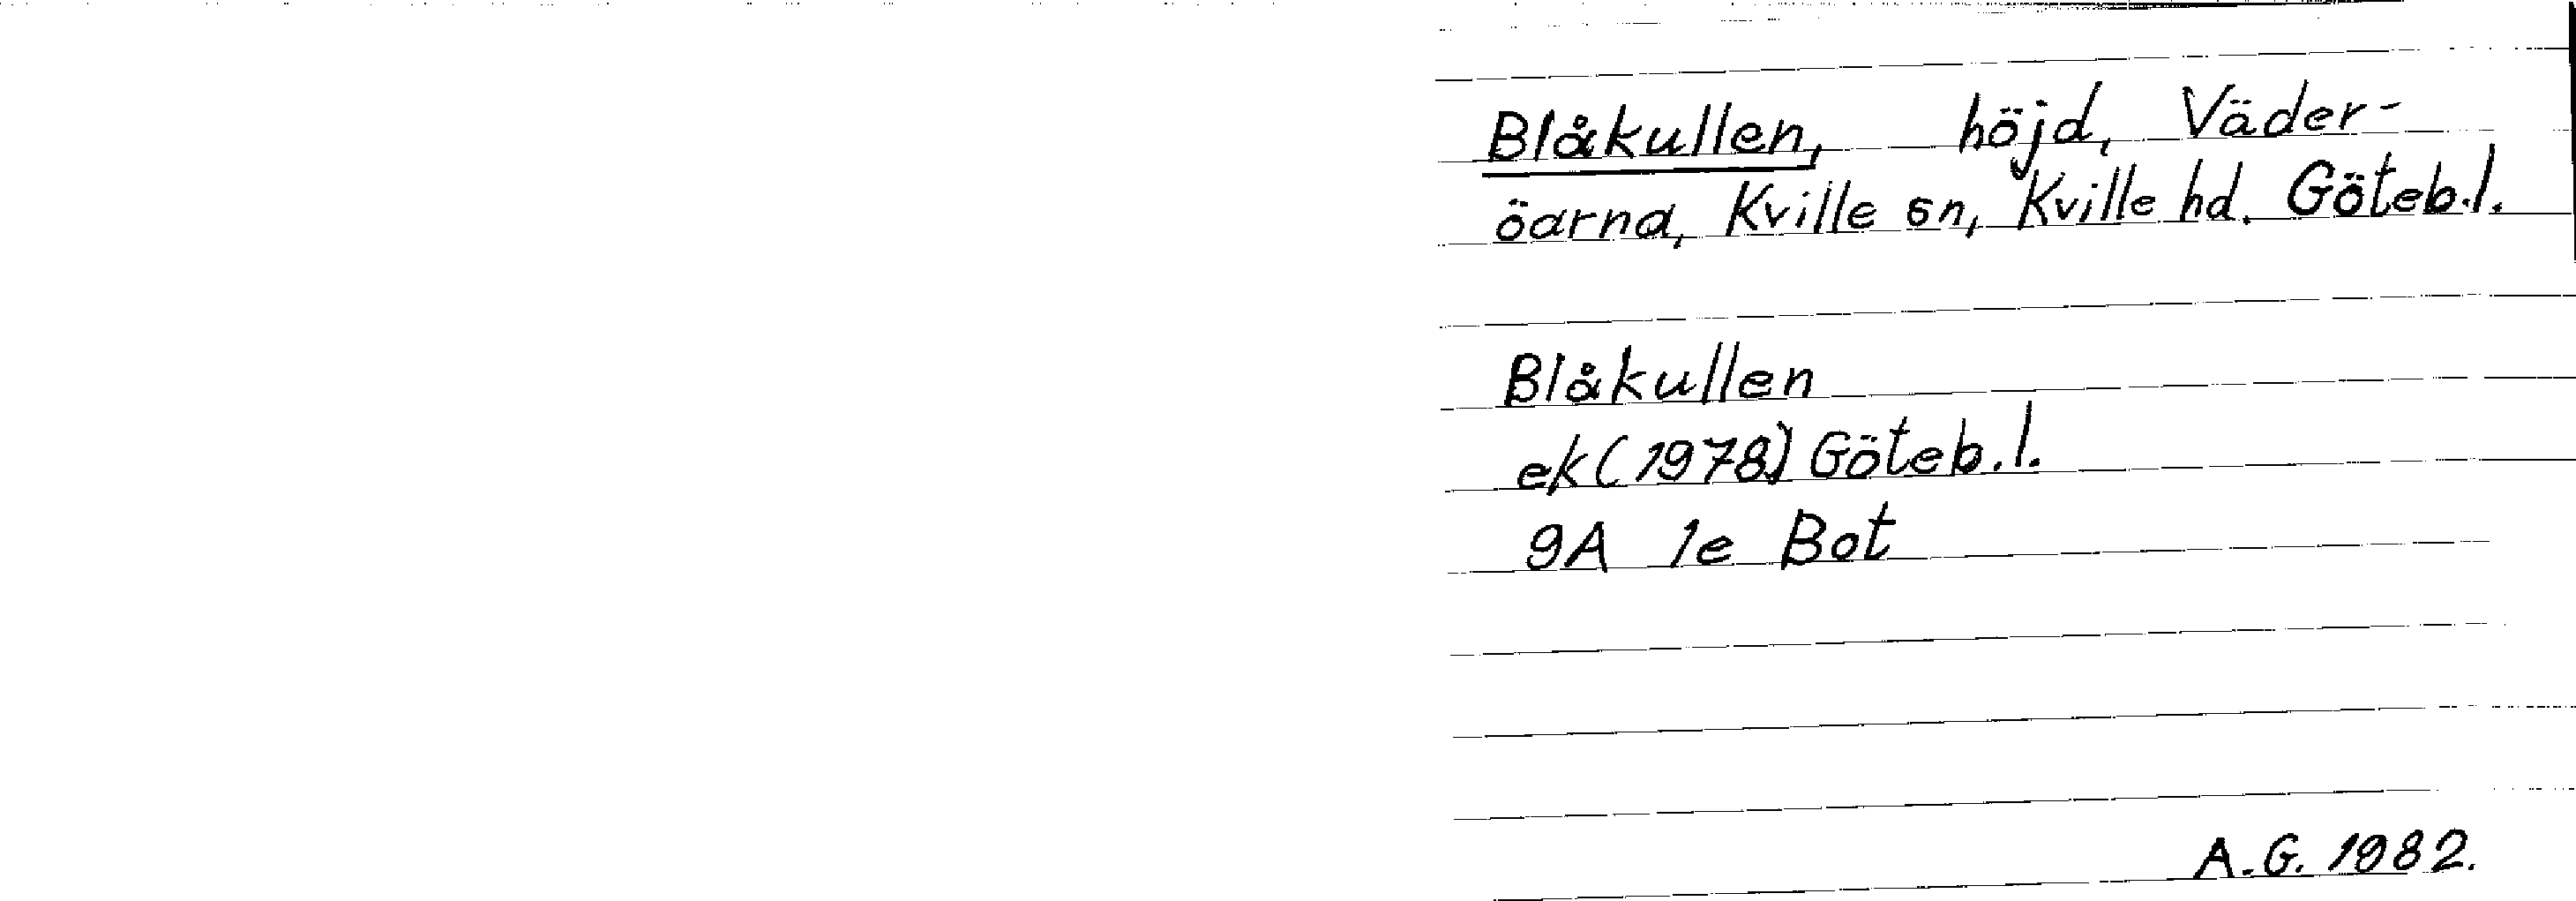 Blåkullen, höjd, Väder-
öarna, Kville sn, Kville hd. Göteb.l.
Blåkullen
ek (1978) Göteb.l.
9A 1e Bot
A.G. 1982.